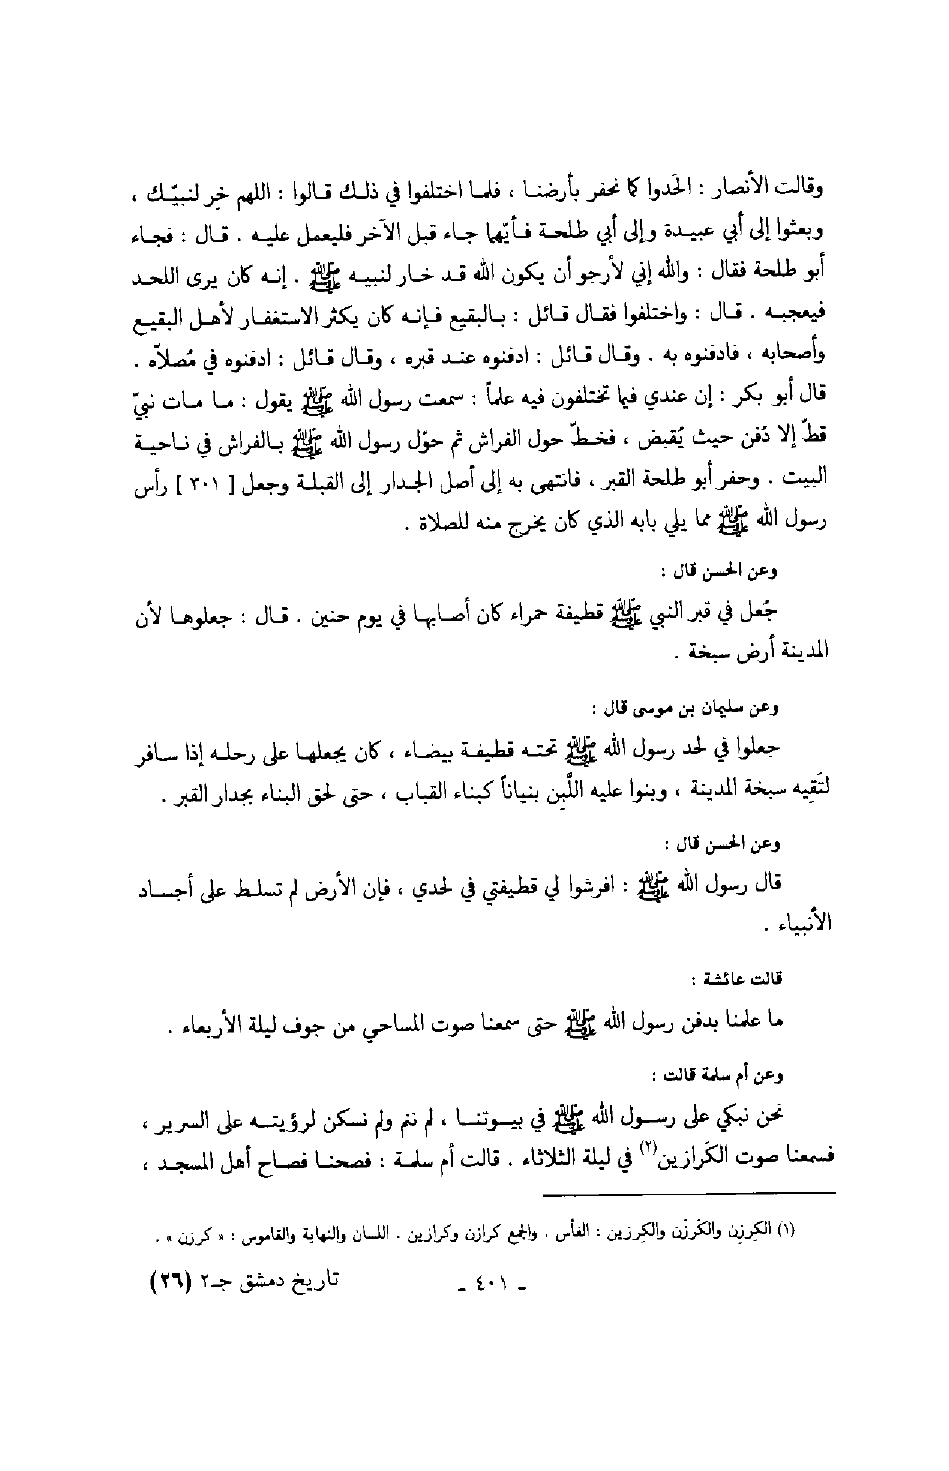 وقالت الأنصار : الحَدوا كما نحفر بأرضنا ، فلما اختلفوا في ذلك قالوا : اللهم خِر لنبيّك ،
وبعثوا إلى أبي عبيدة وإلى أبي طلحة فأيّهما جاء قبل الآخر فليعمل عليه . قال : فجاء
أبو طلحة فقال : والله إني لأرجو أن يكون الله قد خار لنبيه ﷺ . إنه كان يرى اللحد
فيعجبه . قال : واختلفوا فقال قائل : بالبقيع فإنه كان يكثر الاستغفار لأهل البقيع
وأصحابه ، فادفنوه به . وقال قائل : ادفنوه عند قبره ، وقال قائل : ادفنوه في مُصلاّه .
قال أبو بكر : إن عندي فيما تختلفون فيه علماً : سمعت رسول الله ﷺ يقول : ما مات نبيّ
قطّ إلا دُفن حيث يُقبض ، فخطّ حول الفراش ثم حوّل رسول الله ﷺ بالفراش في ناحية
البيت . وحفر أبو طلحة القبر ، فانتهى به إلى أصل الجدار إلى القبلة وجعل [ ٣٠١ ] رأس
رسول الله ﷺ مما يلي بابه الذي كان يخرج منه للصلاة .
وعن الحسن قال :
جُعل في قبر النبي ﷺ قطيفة حمراء كان أصابها في يوم حنين . قال : جعلوها لأن
المدينة أرض سبخة .
وعن سليمان بن موسى قال :
جعلوا في لحد رسول الله ﷺ تحته قطيفة بيضاء ، كان يجعلها على رحله إذا سافر
لتَقِيه سبخة المدينة ، وبنوا عليه اللَّبِن بنياناً كبناء القباب ، حتى لحق البناء بجدار القبر .
وعن الحسن قال :
قال رسول الله ﷺ : افرشوا لي قطيفتي في لحدي ، فإن الأرض لم تسلط على أجساد
الأنبياء .
قالت عائشة :
ما علمنا بدفن رسول الله ﷺ حتى سمعنا صوت المساحي من جوف ليلة الأربعاء .
وعن أم سلمة قالت :
نحن نبكي على رسول الله ﷺ في بيوتنا ، لم ننم ولم نسكن لرؤيته على السرير ،
فسمعنا صوت الكَرازين(٢) في ليلة الثلاثاء . قالت أم سلمة : فصحنا فصاح أهل المسجد ،
(١) الكِرزِن والكَرزَن والكِرزين : الفأس . والجمع كرازن وكرازين . اللسان والنهاية والقاموس : « كرزن » .
ـ ٤٠١ ـ
تاريخ دمشق جـ٢ (٢٦)